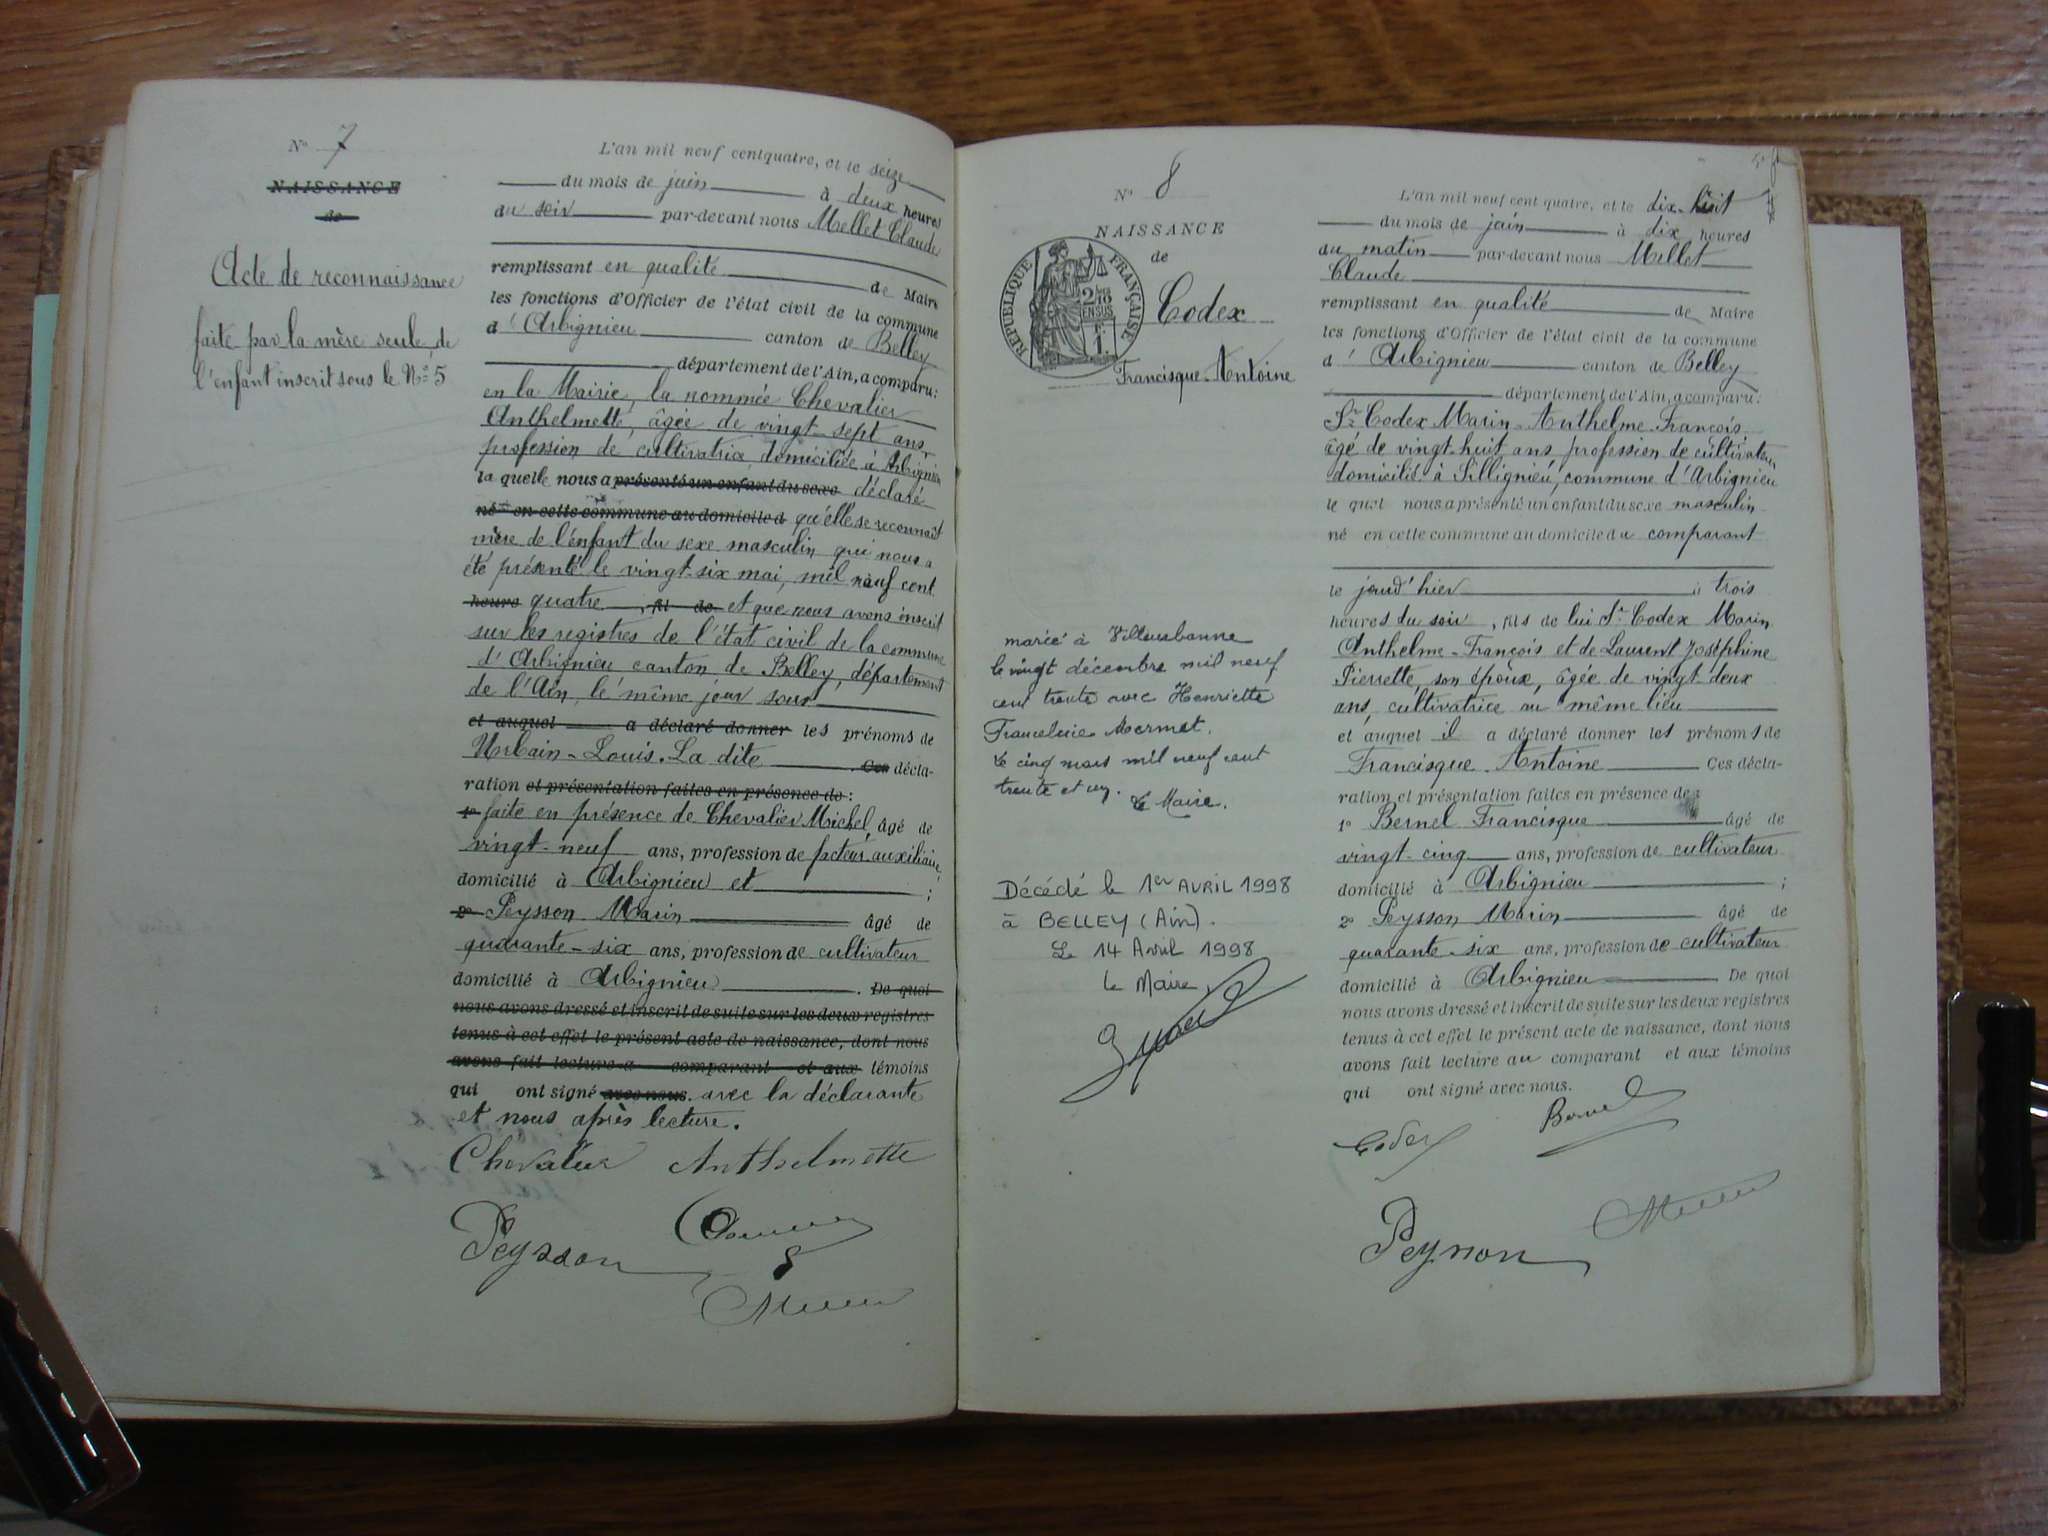 N° 7
NAISSANCE
de
Acte de reconnaissance
faite par la mère seule, de
l'enfant inscrit sous le N° 5
L'an mil neuf cent quatre, et le seize
du mois de juin à deux heures
du soir par-devant nous Mellet Claude
remplissant en qualité de Maire
les fonctions d'Officier de l'état civil de la commune
d'Arbignieu canton de Belley
département de l'Ain, a comparu:
en la Mairie, la nommée Chevalier
Anthelmette, âgée de vingt-sept ans
profession de cultivatrice domiciliée à Arbignieu
la quelle nous a présenté un enfant du sexe déclaré
né en cette commune au domicile d qu'elle se reconnait
mère de l'enfant du sexe masculin qui nous a
été présenté le vingt-six mai, mil neuf cent
heure quatre, fil de et que nous avons inscrit
sur les registres de l'état civil de la commune
d'Arbignieu canton de Belley, département
de l'Ain, le même jour sous
et auquel a déclaré donner les prénoms de
Urbain-Louis. La dite Ces décla-
ration et présentation faites en présence de:
1° faite en présence de Chevalier Michel, âgé de
vingt-neuf ans, profession de facteur auxiliaire
domicilié à Arbignieu et ;
2° Peysson Marin âgé de
quarante-six ans, profession de cultivateur
domicilié à Arbignieu. De quoi
nous avons dressé et inscrit de suite sur les deux registres
tenus à cet effet le présent acte de naissance, dont nous
avons fait lecture a comparant et aux témoins
qui ont signé avec nous. avec la déclarante
et nous après lecture.
Chevalier Anthelmette
Peysson
N° 8
NAISSANCE
de
RÉPUBLIQUE FRANÇAISE
Codex
Francisque-Antoine
marié à Villeurbanne
le vingt décembre mil neuf
cent trente avec Henriette
Mermet.
Le cinq mars mil neuf cent
trente et un. Le Maire.
Décédé le 1er AVRIL 1998
à BELLEY (Ain).
Le 14 Avril 1998
Le Maire,
L'an mil neuf cent quatre, et le dix-huit
du mois de juin à dix heures
du matin par-devant nous Mellet
Claude
remplissant en qualité de Maire
les fonctions d'Officier de l'état civil de la commune
d'Arbignieu canton de Belley
département de l'Ain, a comparu:
Sr Codex Marin-Anthelme-François,
âgé de vingt-huit ans profession de cultivateur
domicilié à Sillignieu, commune d'Arbignieu
le quel nous a présenté un enfant du sexe masculin
né en cette commune au domicile du comparant
le jourd'hier à trois
heures du soir, fils de lui Sr Codex Marin
Anthelme-François et de Laurent Joséphine
Pierrette, son époux, âgée de vingt-deux
ans, cultivatrice au même lieu
et auquel il a déclaré donner les prénoms de
Francisque-Antoine Ces décla-
ration et présentation faites en présence de:
1° Bernel Francisque âgé de
vingt-cinq ans, profession de cultivateur
domicilié à Arbignieu ;
2° Peysson Marin âgé de
quarante-six ans, profession de cultivateur
domicilié à Arbignieu De quoi
nous avons dressé et inscrit de suite sur les deux registres
tenus à cet effet le présent acte de naissance, dont nous
avons fait lecture au comparant et aux témoins
qui ont signé avec nous.
Codex Bernel
Peysson